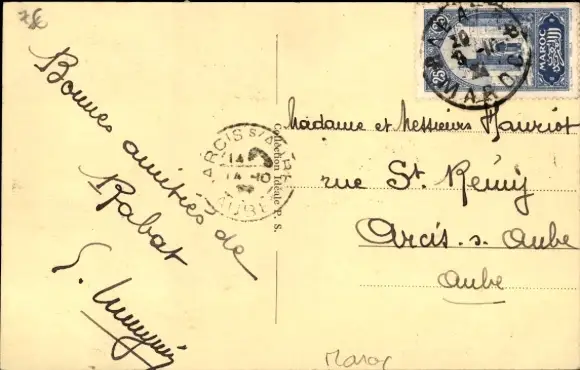 Bonnes amitiés de
Rabat
MAROC
25
MAROC
Madame et Messieurs Hauriot
rue St. Rémy
Arcis. s. Aube
Aube
ARCIS S/AUBE
14
14 -10
AUBE
Collection Idéale P. S.
Maroc